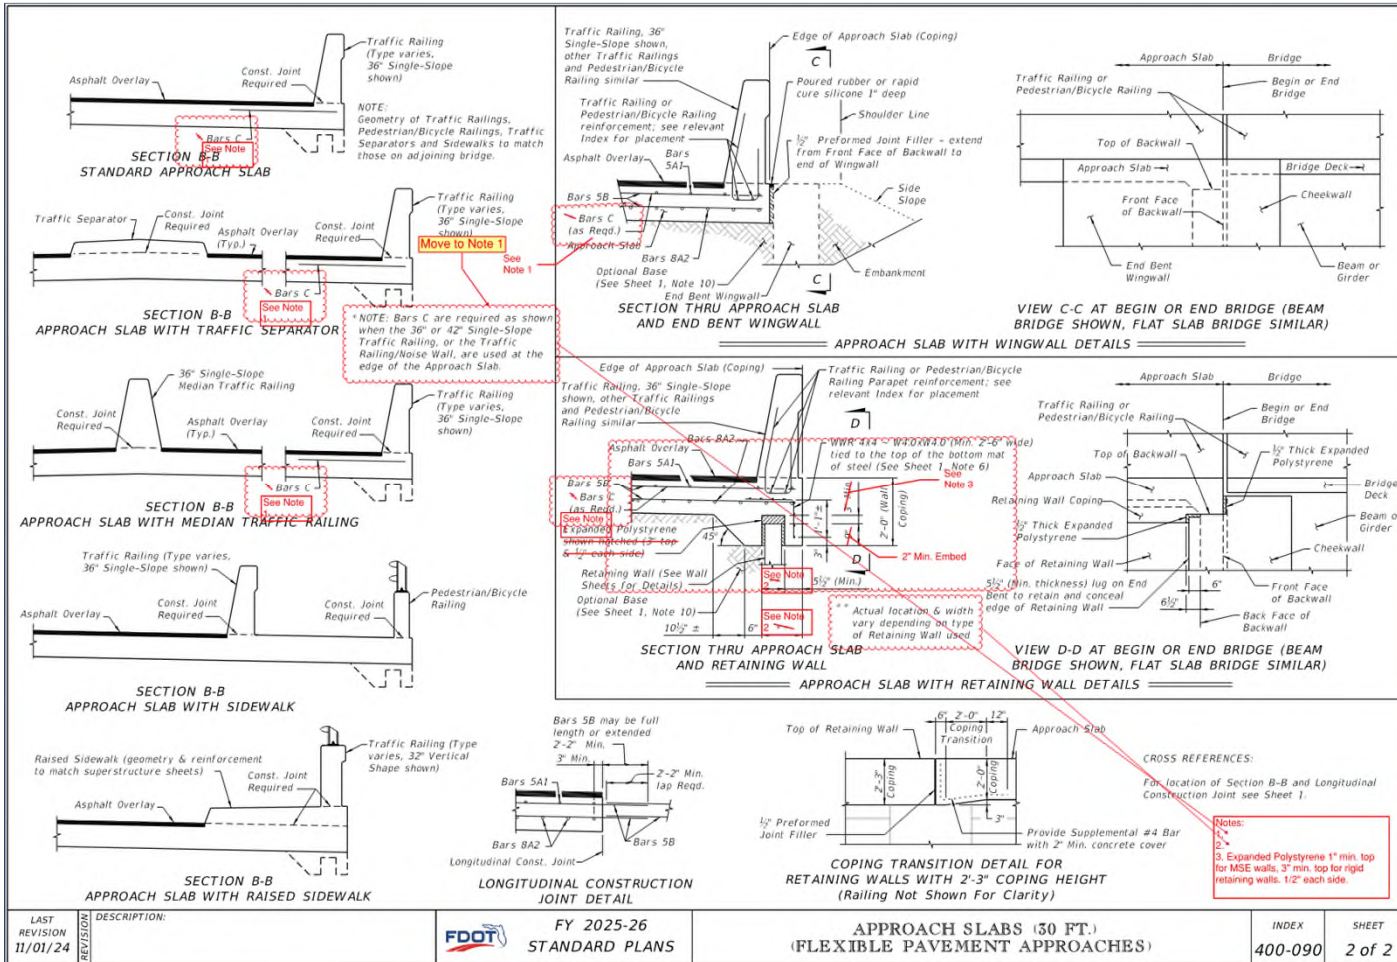 Traffic Railing
(Type varies,
36" Single-Slope
shown)
Const. Joint
Required
Asphalt Overlay
NOTE:
Geometry of Traffic Railings,
Pedestrian/Bicycle Railings, Traffic
Separators and Sidewalks to match
those on adjoining bridge.
Bars C
See Note
SECTION B-B
STANDARD APPROACH SLAB
Traffic Separator
Const. Joint
Required
Asphalt Overlay
(Typ.)
Const. Joint
Required
Traffic Railing
(Type varies,
36" Single-Slope
shown)
Move to Note 1
Bars C
See Note
1
SECTION B-B
APPROACH SLAB WITH TRAFFIC SEPARATOR
* NOTE: Bars C are required as shown
when the 36" or 42" Single-Slope
Traffic Railing, or the Traffic
Railing/Noise Wall, are used at the
edge of the Approach Slab.
36" Single-Slope
Median Traffic Railing
Const. Joint
Required
Asphalt Overlay
(Typ.)
Const. Joint
Required
Traffic Railing
(Type varies,
36" Single-Slope
shown)
Bars C
See Note
SECTION B-B
APPROACH SLAB WITH MEDIAN TRAFFIC RAILING
Traffic Railing (Type varies,
36" Single-Slope shown)
Asphalt Overlay
Const. Joint
Required
Const. Joint
Required
Pedestrian/Bicycle
Railing
SECTION B-B
APPROACH SLAB WITH SIDEWALK
Raised Sidewalk (geometry & reinforcement
to match superstructure sheets)
Const. Joint
Required
Asphalt Overlay
Traffic Railing (Type
varies, 32" Vertical
Shape shown)
SECTION B-B
APPROACH SLAB WITH RAISED SIDEWALK
Traffic Railing, 36"
Single-Slope shown,
other Traffic Railings
and Pedestrian/Bicycle
Railing similar
Edge of Approach Slab (Coping)
C
Poured rubber or rapid
cure silicone 1" deep
Traffic Railing or
Pedestrian/Bicycle Railing
reinforcement; see relevant
Index for placement
Shoulder Line
½" Preformed Joint Filler - extend
from Front Face of Backwall to
end of Wingwall
Asphalt Overlay
Bars
5A1
Bars 5B
Bars C
(as Reqd.)
Approach Slab
See
Note 1
Bars 8A2
Side
Slope
Optional Base
(See Sheet 1, Note 10)
End Bent Wingwall
Embankment
C
SECTION THRU APPROACH SLAB
AND END BENT WINGWALL
Approach Slab
Bridge
Traffic Railing or
Pedestrian/Bicycle Railing
Begin or End
Bridge
Top of Backwall
Approach Slab
Bridge Deck
Front Face
of Backwall
Cheekwall
End Bent
Wingwall
Beam or
Girder
VIEW C-C AT BEGIN OR END BRIDGE (BEAM
BRIDGE SHOWN, FLAT SLAB BRIDGE SIMILAR)
APPROACH SLAB WITH WINGWALL DETAILS
Edge of Approach Slab (Coping)
Traffic Railing, 36" Single-Slope
shown, other Traffic Railings
and Pedestrian/Bicycle
Railing similar
Traffic Railing or Pedestrian/Bicycle
Railing Parapet reinforcement; see
relevant Index for placement
D
Bars 8A2
Asphalt Overlay
Bars 5A1
WWR 4x4 ~ W4.0xW4.0 (Min. 2'-6" wide)
tied to the top of the bottom mat
of steel (See Sheet 1, Note 6)
See
Note 3
Bars 5B
Bars C
(as Reqd.)
See Note
Expanded Polystyrene
shown hatched (3" top
& ½" each side)
45°
1'-1"±
3"
3" Min.
2'-0" (Wall
Coping)
2" Min. Embed
D
Retaining Wall (See Wall
Sheets for Details)
See Note
2
5½" (Min.)
Optional Base
(See Sheet 1, Note 10)
See Note
2
10½" ±
6"
** Actual location & width
vary depending on type
of Retaining Wall used
SECTION THRU APPROACH SLAB
AND RETAINING WALL
Approach Slab
Bridge
Traffic Railing or
Pedestrian/Bicycle Railing
Begin or End
Bridge
Top of Backwall
½" Thick Expanded
Polystyrene
Approach Slab
Bridge
Deck
Retaining Wall Coping
½" Thick Expanded
Polystyrene
Beam or
Girder
Face of Retaining Wall
Cheekwall
5½" (Min. thickness) lug on End
Bent to retain and conceal
edge of Retaining Wall
6"
6½"
Front Face
of Backwall
Back Face of
Backwall
VIEW D-D AT BEGIN OR END BRIDGE (BEAM
BRIDGE SHOWN, FLAT SLAB BRIDGE SIMILAR)
APPROACH SLAB WITH RETAINING WALL DETAILS
Bars 5B may be full
length or extended
2'-2" Min.
3" Min.
2'-2" Min.
lap Reqd.
Bars 5A1
Bars 8A2
Bars 5B
Longitudinal Const. Joint
LONGITUDINAL CONSTRUCTION
JOINT DETAIL
Top of Retaining Wall
6" 2'-0" 12"
Coping
Transition
Approach Slab
2'-3"
Coping
2'-0"
Coping
3"
½" Preformed
Joint Filler
Provide Supplemental #4 Bar
with 2" Min. concrete cover
COPING TRANSITION DETAIL FOR
RETAINING WALLS WITH 2'-3" COPING HEIGHT
(Railing Not Shown For Clarity)
CROSS REFERENCES:
For location of Section B-B and Longitudinal
Construction Joint see Sheet 1.
Notes:
1.
2.
3. Expanded Polystyrene 1" min. top
for MSE walls, 3" min. top for rigid
retaining walls. 1/2" each side.
LAST
REVISION
11/01/24
REVISION
DESCRIPTION:
FDOT
FY 2025-26
STANDARD PLANS
APPROACH SLABS (30 FT.)
(FLEXIBLE PAVEMENT APPROACHES)
INDEX
400-090
SHEET
2 of 2